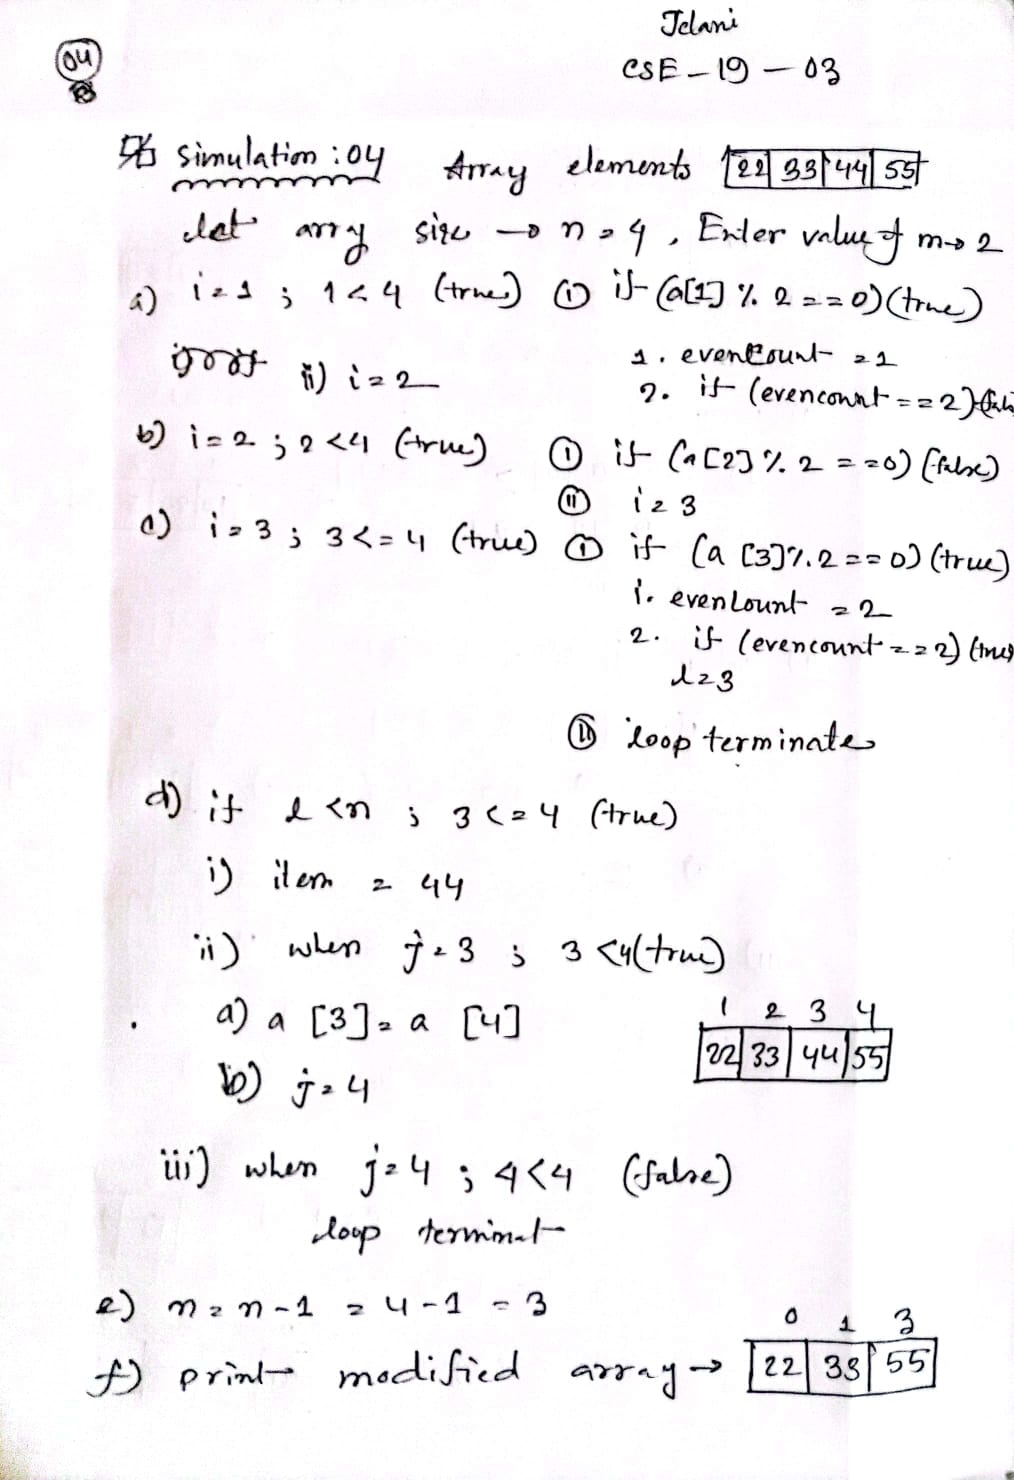 Jelani
04
CSE - 19 - 03
simulation : 04 Array elements 22 33 44 55
let arry size → n = 4 , Enter value of m → 2
a) i = 1 ; 1 < 4 (true) (i) if (a[1] % 2 == 0) (true)
1. evencount = 1
ii) i = 2
2. if (evencount == 2)
b) i = 2 ; 2 < 4 (true) (i) if (a[2] % 2 == 0) (false)
(ii) i = 3
c) i = 3 ; 3 <= 4 (true) (i) if (a [3] % 2 == 0) (true)
1. evenCount = 2
2. if (evencount == 2) (true)
l = 3
(ii) loop terminate
d) if l < n ; 3 <= 4 (true)
i) item = 44
ii) when j = 3 ; 3 < 4 (true)
a) a [3] = a [4]
1 2 3 4
22 33 44 55
b) j = 4
iii) when j = 4 ; 4 < 4 (false)
loop terminat
e) n = n - 1 = 4 - 1 = 3
0 1 3
f) print → modified array → 22 33 55